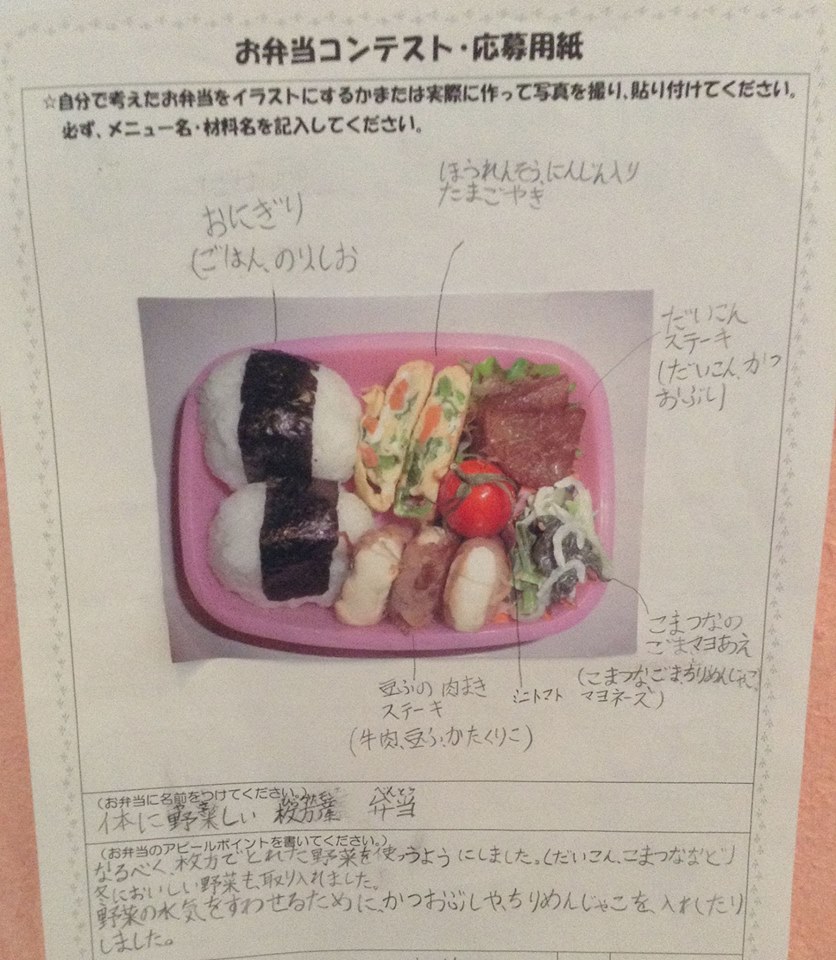 お弁当コンテスト・応募用紙
☆自分で考えたお弁当をイラストにするかまたは実際に作って写真を撮り、貼り付けてください。
必ず、メニュー名・材料名を記入してください。
ほうれんそう、にんじん入り
たまごやき
おにぎり
(ごはん、のり、しお
だいこん
ステーキ
(だいこん、かつ
おぶし)
こまつなの
ごまマヨあえ
(こまつな、ごま、ちりめんじゃこ、
マヨネーズ)
豆ふの肉まき
ステーキ
(牛肉、豆ふ、かたくりこ)
ミニトマト
(お弁当に名前をつけてください。)
体に野菜しい 枚方産 弁当
(お弁当のアピールポイントを書いてください。)
なるべく、枚方でとれた野菜を使うようにしました。(だいこん、こまつななど)
冬においしい野菜も取り入れました。
野菜の水気をすわせるために、かつおぶしや、ちりめんじゃこを、入れたり
しました。